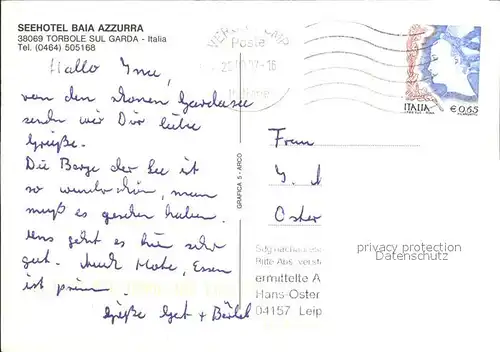 SEEHOTEL BAIA AZZURRA
38069 TORBOLE SUL GARDA - Italia
Tel. (0464) 505168
Hallo
von den schönen Gardasee
senden wir Dir liebe
Grüße.
Die Berge der See ist
so wunderschön, man
muß es gesehen haben.
Uns geht es hier sehr
gut. Auch Essen
ist prima.
Grüße + Bärbel
GRAFICA 5 - ARCO
Poste
Italiane
ITALIA
€ 0,65
Frau
Oster
privacy protection
Datenschutz
Bitte Abs. verst
ermittelte A
Hans-Oster
04157 Leip